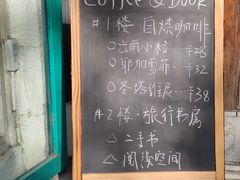 Coffee & Book
#1楼 自烘咖啡
○云南小粒…¥28
○耶加雪菲…¥32
○冬塔维辰…¥38
#2楼·旅行书房
△二手书
△阅读空间